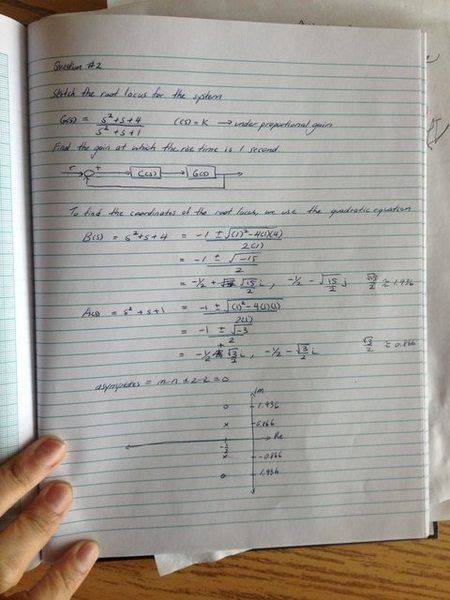 Question #2
Sketch the root locus for the system
G(s) = s²+s+4 / s²+s+1 C(s) = K → under proportional gain
Find the gain at which the rise time is 1 second.
r + - C(s) G(s)
To find the coordinates of the root locus, we use the quadratic equation
B(s) = s²+s+4 = -1 ± √(1)²-4(1)(4) / 2(1)
= -1 ± √-15 / 2
= -½ + √15/2 i, -½ - √15/2 i √15/2 ≈ 1.936
A(s) = s²+s+1 = -1 ± √(1)²-4(1)(1) / 2(1)
= -1 ± √-3 / 2
= -½ + √3/2 i, -½ - √3/2 i √3/2 ≈ 0.866
asymptotes = m-n = 2-2 = 0
Im
o 1.936
x 0.866
-½ Re
x -0.866
o 1.936